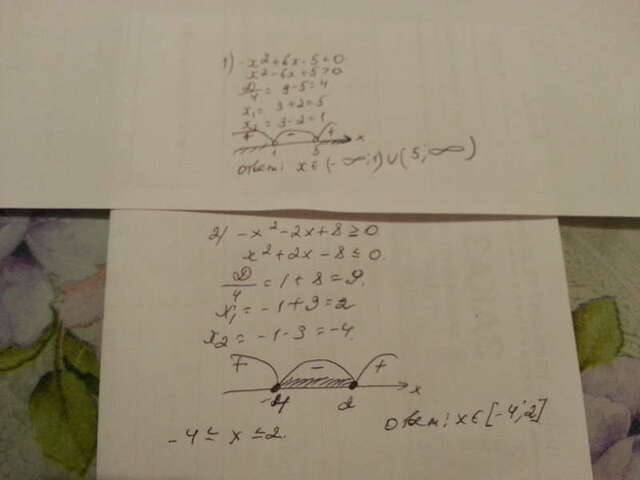 1) -x²+6x-5<0
x²-6x+5>0
D/4 = 9-5=4
x₁= 3+2=5
x₂ = 3-2=1
+ - + x
1 5
Ответ: x∈(-∞;1)∪(5;∞)
2) -x²-2x+8≥0
x²+2x-8≤0.
D/4 = 1+8=9.
x₁= -1+3=2
x₂= -1-3=-4.
+ - + x
-4 2
-4≤x≤2.
Ответ: x∈[-4;2]